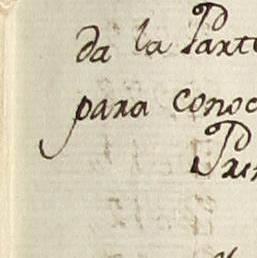 da la Parte
para conoc
Pri